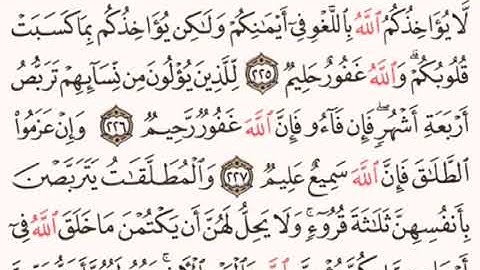 لَّا يُؤَاخِذُكُمُ ٱللَّهُ بِٱللَّغْوِ فِىٓ أَيْمَٰنِكُمْ وَلَٰكِن يُؤَاخِذُكُم بِمَا كَسَبَتْ
قُلُوبُكُمْ ۗ وَٱللَّهُ غَفُورٌ حَلِيمٌ ٢٢٥ لِّلَّذِينَ يُؤْلُونَ مِن نِّسَآئِهِمْ تَرَبُّصُ
أَرْبَعَةِ أَشْهُرٍ ۖ فَإِن فَآءُو فَإِنَّ ٱللَّهَ غَفُورٌ رَّحِيمٌ ٢٢٦ وَإِنْ عَزَمُوا۟
ٱلطَّلَٰقَ فَإِنَّ ٱللَّهَ سَمِيعٌ عَلِيمٌ ٢٢٧ وَٱلْمُطَلَّقَٰتُ يَتَرَبَّصْنَ
بِأَنفُسِهِنَّ ثَلَٰثَةَ قُرُوٓءٍ ۚ وَلَا يَحِلُّ لَهُنَّ أَن يَكْتُمْنَ مَا خَلَقَ ٱللَّهُ فِىٓ